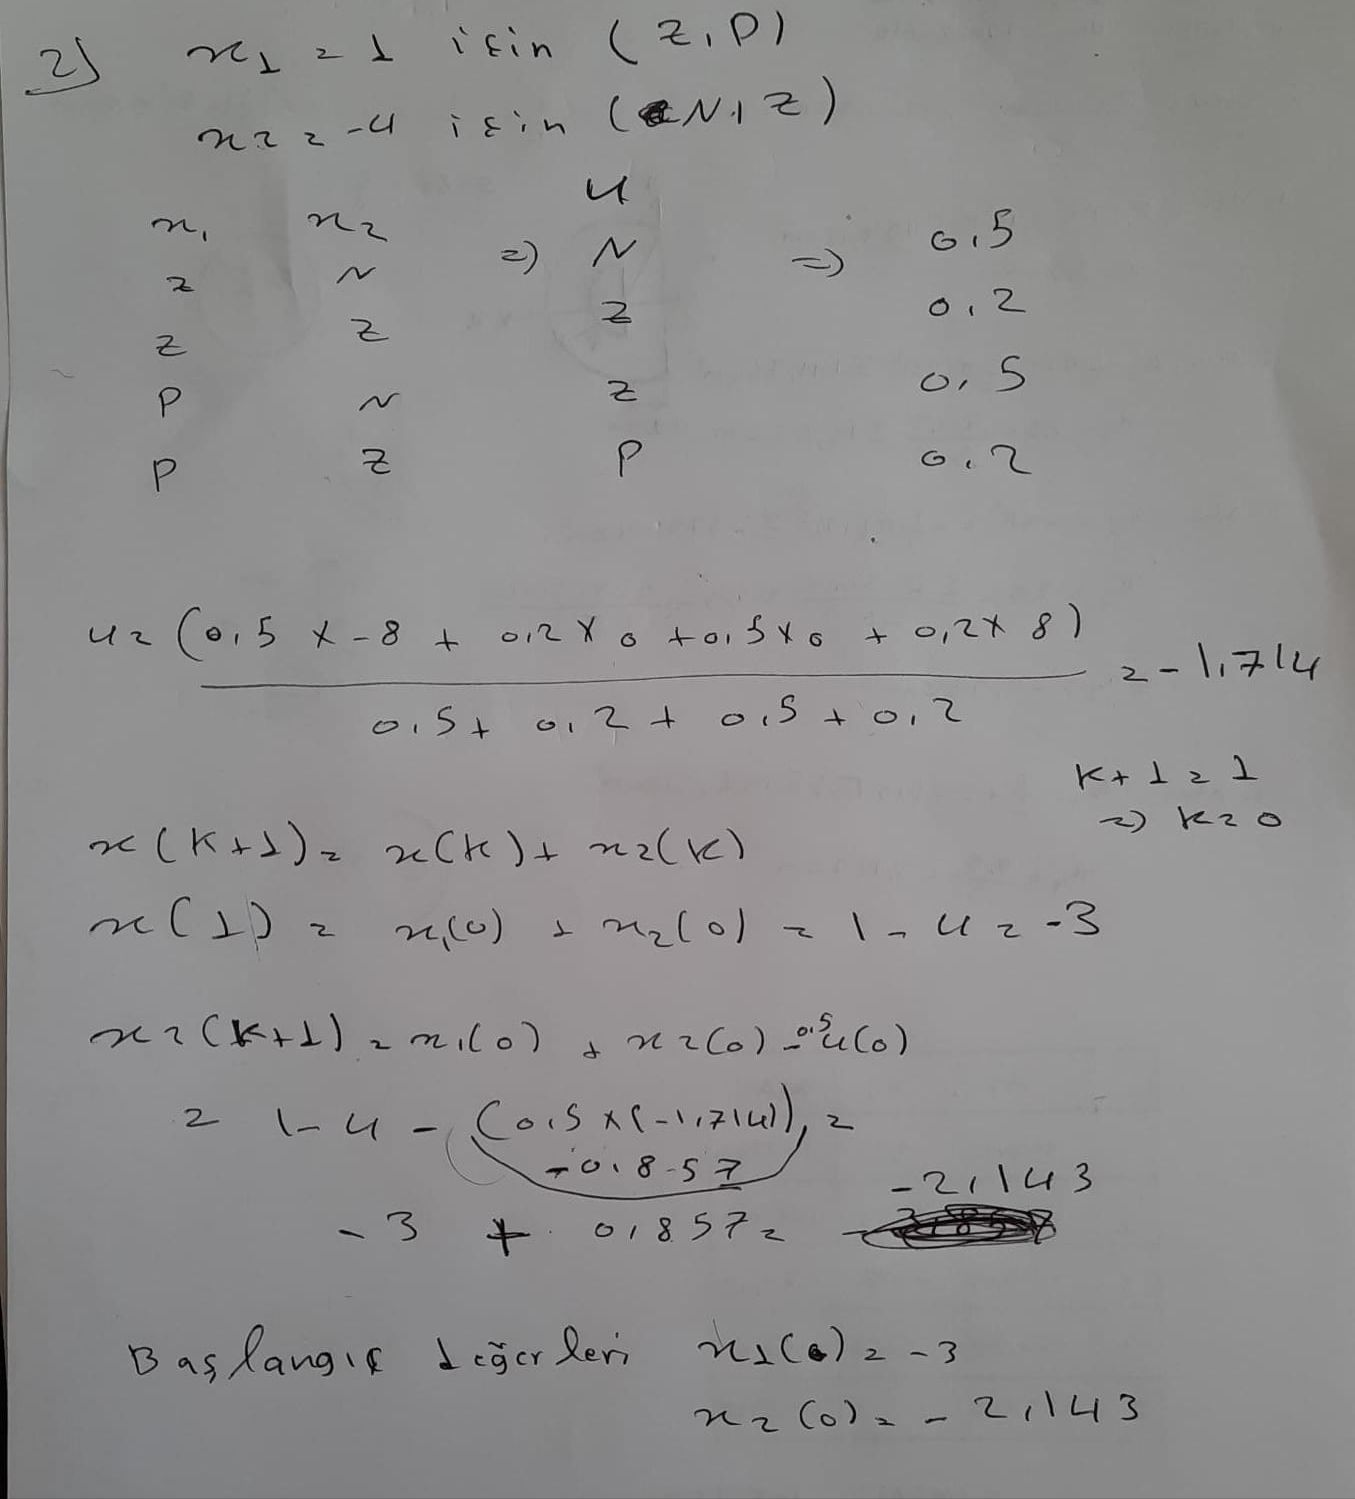 2) x1 = 1 için (Z, P)
x2 = -4 için (N, Z)
u
x1 x2 => N => 0,5
Z N Z 0,2
Z Z Z 0,5
P N P 0,2
P Z
u = (0,5 x -8 + 0,2 x 0 + 0,5 x 0 + 0,2 x 8) = -1,714
0,5 + 0,2 + 0,5 + 0,2
k+1 = 1
=> k = 0
x(k+1) = x(k) + x2(k)
x(1) = x1(0) + x2(0) = 1 - 4 = -3
x2(k+1) = x1(0) + x2(0) - 0.5 u(0)
= 1 - 4 - (0,5 x (-1,714)) =
-0,857
-2,143
-3 + 0,857 =
Başlangıç değerleri x1(0) = -3
x2(0) = -2,143